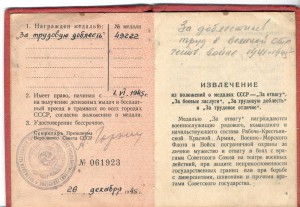 1. Награжден медалью:
№ медали
"За трудовую доблесть"
49222
2. Имеет право, начиная с
1.VI.1945г.
на получение денежных выдач и бесплатный проезд в трамваях во всех городах СССР, согласно положению о медали.
3. Удостоверение бессрочное.
Секретарь Президиума
Верховного Совета СССР
№ 061923
28 декабря 1945г.
За доблестный
труд в великой оте-
честв. войне 1941-1945
ИЗВЛЕЧЕНИЕ
из положения о медалях СССР—„За отвагу",
„За боевые заслуги", „За трудовую доблесть"
и „За трудовое отличие".
Медалью „За отвагу" награждаются
военнослужащие рядового, командного и
начальствующего состава Рабоче-Крестьян-
ской Красной Армии, Военно-Морского
Флота и Войск пограничной охраны за
личное мужество и отвагу в боях с вра-
гами Советского Союза на театре военных
действий, при защите неприкосновенности
государственных границ или при борьбе
с диверсантами, шпионами и прочими вра-
гами Советского Союза.